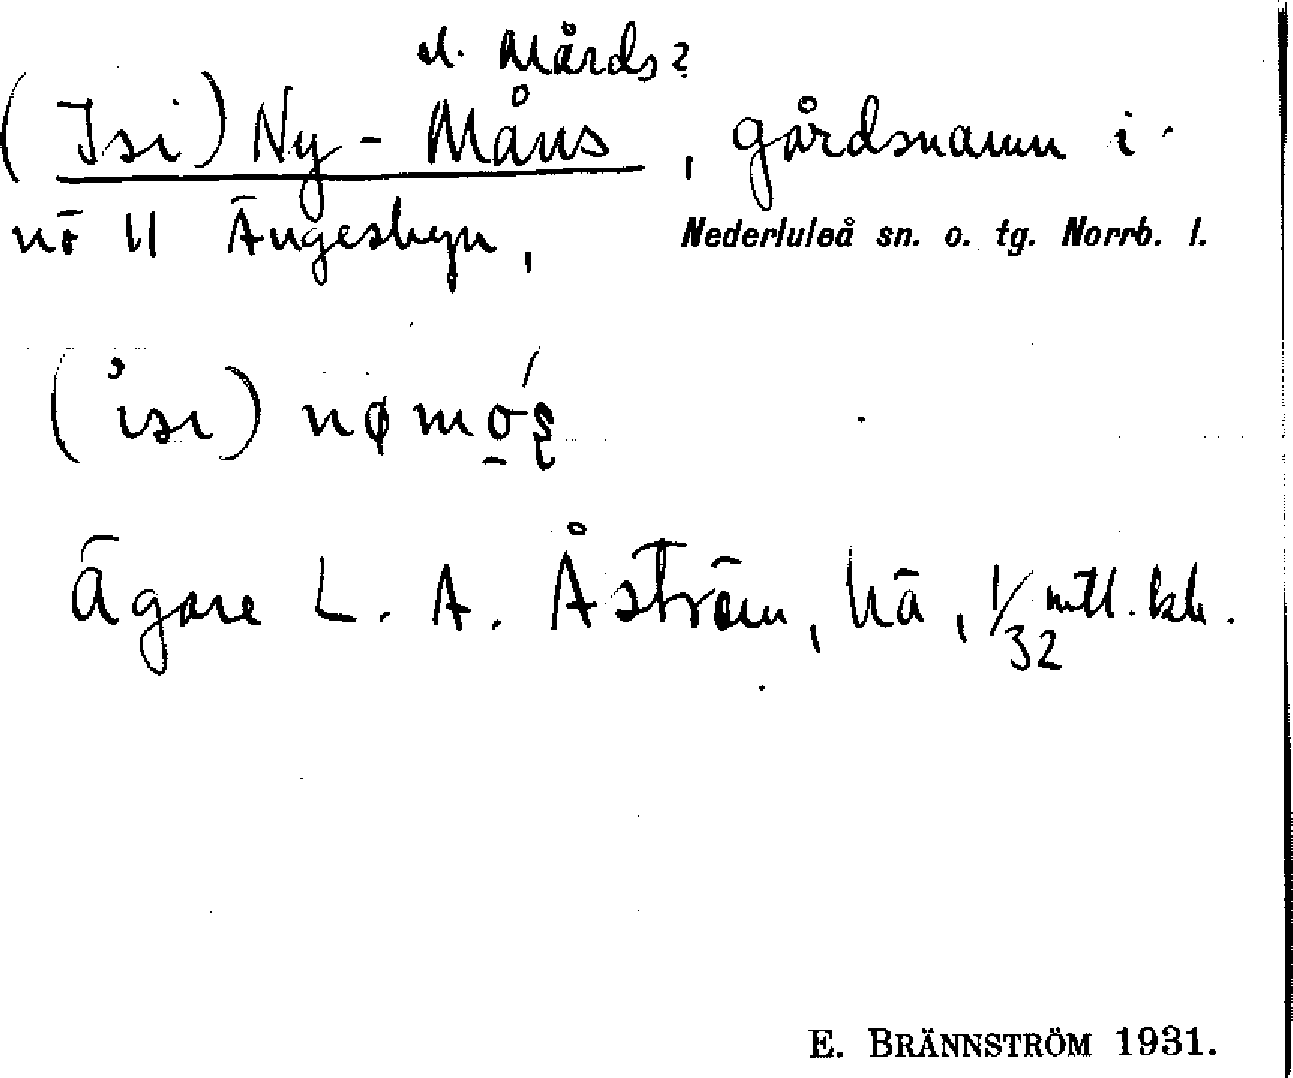 el. Mårds?
(Isi) Ny-Måns, gårdsnamn i
nr 11 Ängesbyn, Nederluleå sn. o. tg. Norrb. l.
(isi)
Ägare L. A. Åström, hä, 1/32 mtl. kh.
E. BRÄNNSTRÖM 1931.